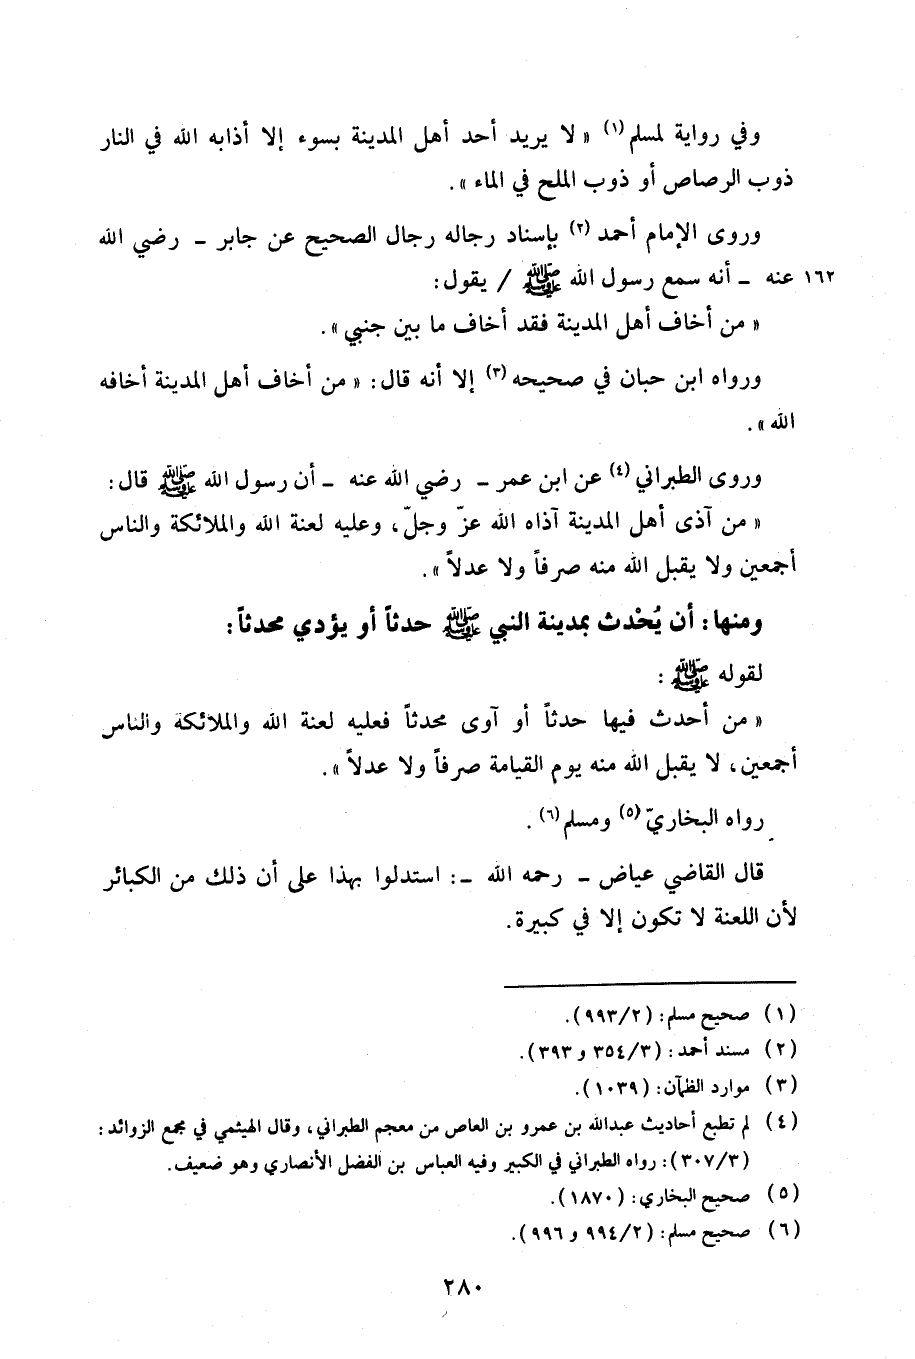 وفي رواية لمسلم(١) « لا يريد أحد أهل المدينة بسوء إلا أذابه الله في النار
ذوب الرصاص أو ذوب الملح في الماء ».
وروى الإمام أحمد (٢) بإسناد رجاله رجال الصحيح عن جابر ـ رضي الله
١٦٢ عنه ـ أنه سمع رسول الله ﷺ / يقول:
« من أخاف أهل المدينة فقد أخاف ما بين جنبي ».
ورواه ابن حبان في صحيحه (٣) إلا أنه قال: « من أخاف أهل المدينة أخافه
الله ».
وروى الطبراني (٤) عن ابن عمر ـ رضي الله عنه ـ أن رسول الله ﷺ قال:
« من آذى أهل المدينة آذاه الله عزّ وجلّ، وعليه لعنة الله والملائكة والناس
أجمعين ولا يقبل الله منه صرفاً ولا عدلاً ».
ومنها: أن يُحْدث بمدينة النبي ﷺ حدثاً أو يؤدي محدثاً:
لقوله ﷺ :
« من أحدث فيها حدثاً أو آوى محدثاً فعليه لعنة الله والملائكة والناس
أجمعين، لا يقبل الله منه يوم القيامة صرفاً ولا عدلاً ».
رواه البخاريّ (٥) ومسلم(٦) .
قال القاضي عياض ـ رحمه الله ـ: استدلوا بهذا على أن ذلك من الكبائر
لأن اللعنة لا تكون إلا في كبيرة.
(١) صحيح مسلم: (٩٩٣/٢).
(٢) مسند أحمد: (٣٥٤/٣ و ٣٩٣).
(٣) موارد الظمآن: (١٠٣٩).
(٤) لم تطبع أحاديث عبدالله بن عمرو بن العاص من معجم الطبراني، وقال الهيثمي في مجمع الزوائد:
(٣٠٧/٣): رواه الطبراني في الكبير وفيه العباس بن الفضل الأنصاري وهو ضعيف.
(٥) صحيح البخاري: (١٨٧٠).
(٦) صحيح مسلم: (٩٩٤/٢ و ٩٩٦).
٢٨٠